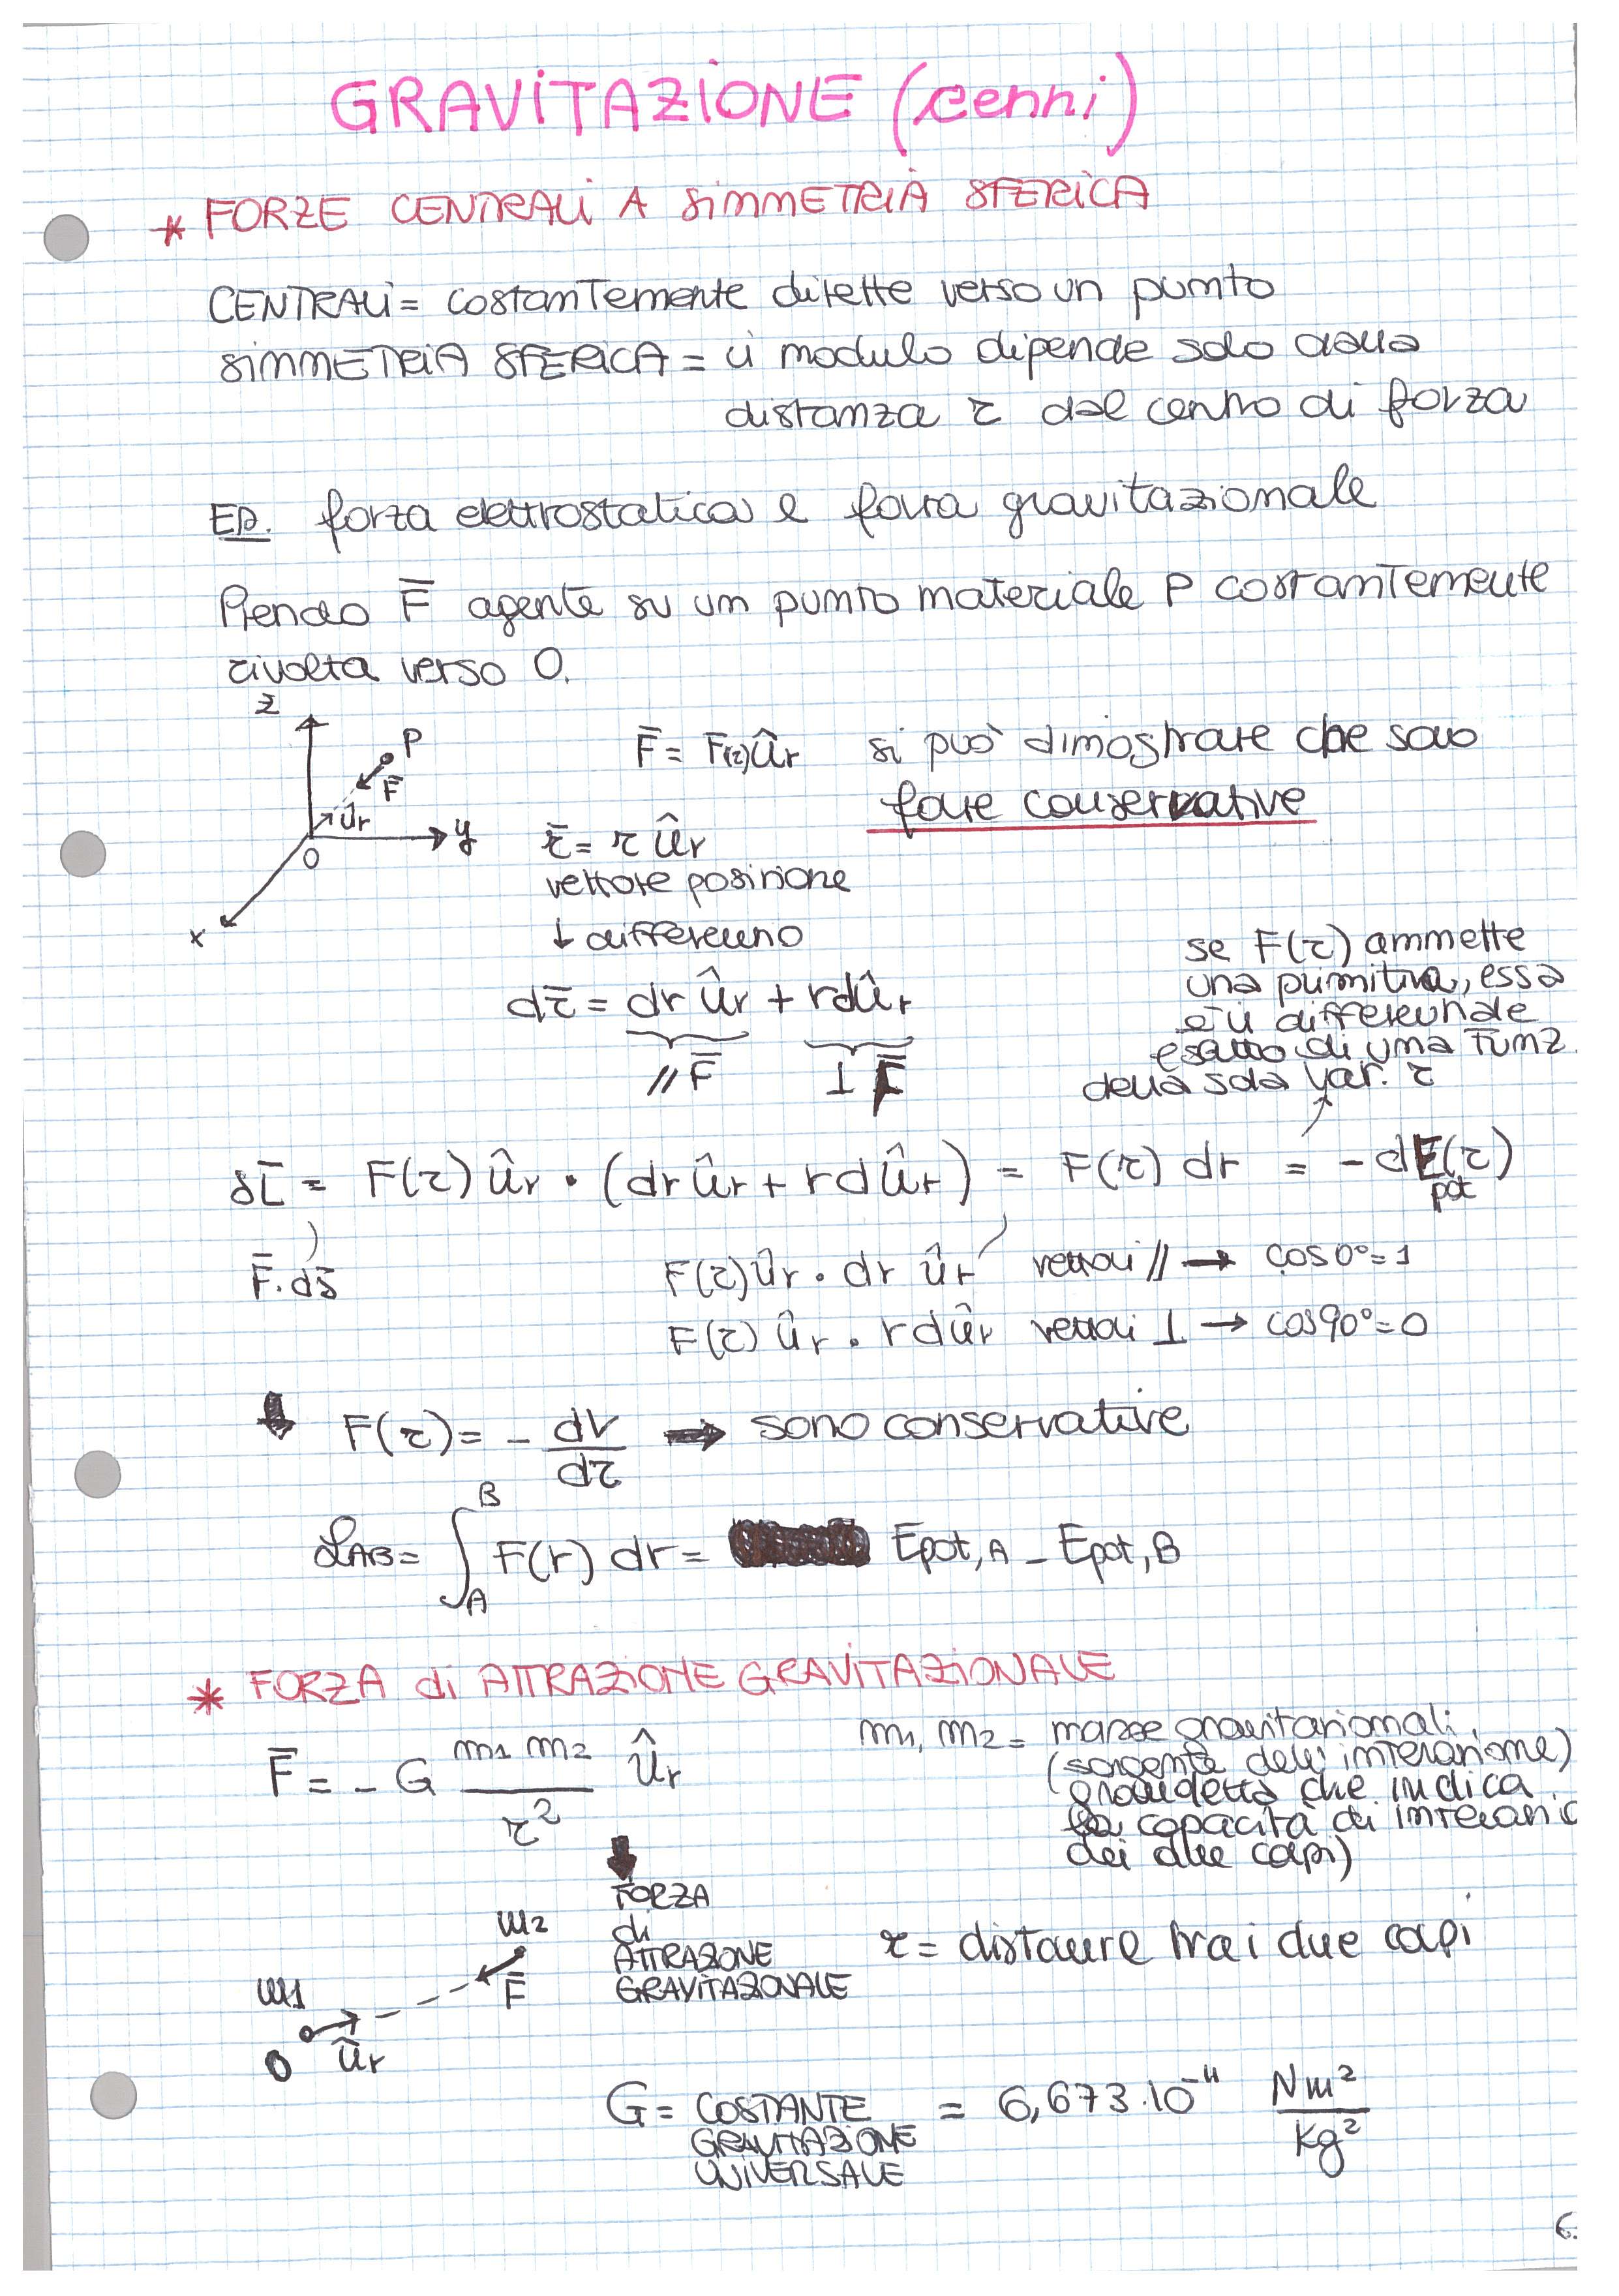 GRAVITAZIONE (cenni)
* FORZE CENTRALI A SIMMETRIA SFERICA
CENTRALI = costantemente dirette verso un punto
SIMMETRIA SFERICA = il modulo dipende solo dalla
distanza r dal centro di forza
ES. forza elettrostatica e forza gravitazionale
Prendo F̅ agente su un punto materiale P costantemente
rivolta verso O.
z
P
F̅
ûr
y
O
x
F̅ = F(r) ûr si può dimostrare che sono
forze conservative
r̅ = r ûr
vettore posizione
↓ differenzio
dr̅ = dr ûr + r dûr
// F̅ ⊥ F̅
se F(r) ammette
una primitiva, essa
è il differenziale
esatto di una funz.
della sola var. r
δL̅ = F(r) ûr · (dr ûr + r dûr) = F(r) dr = - dE(r)
pot
F̅ · ds̅
F(r) ûr · dr ûr vettori // → cos 0° = 1
F(r) ûr · r dûr vettori ⊥ → cos 90° = 0
↓ F(r) = - dV/dr → sono conservative
L AB = ∫ A B F(r) dr = Epot,A - Epot,B
* FORZA di ATTRAZIONE GRAVITAZIONALE
F̅ = - G m1 m2 / r² ûr
m1, m2 = masse gravitazionali
(sorgente dell'interazione)
grandezza che indica
la capacità di
dei due corpi)
FORZA
di
ATTRAZIONE
GRAVITAZIONALE
r = distanze tra i due corpi
m2
F̅
m1
O ûr
G = COSTANTE = 6,673·10⁻¹¹ Nm²/kg²
GRAVITAZIONE
UNIVERSALE